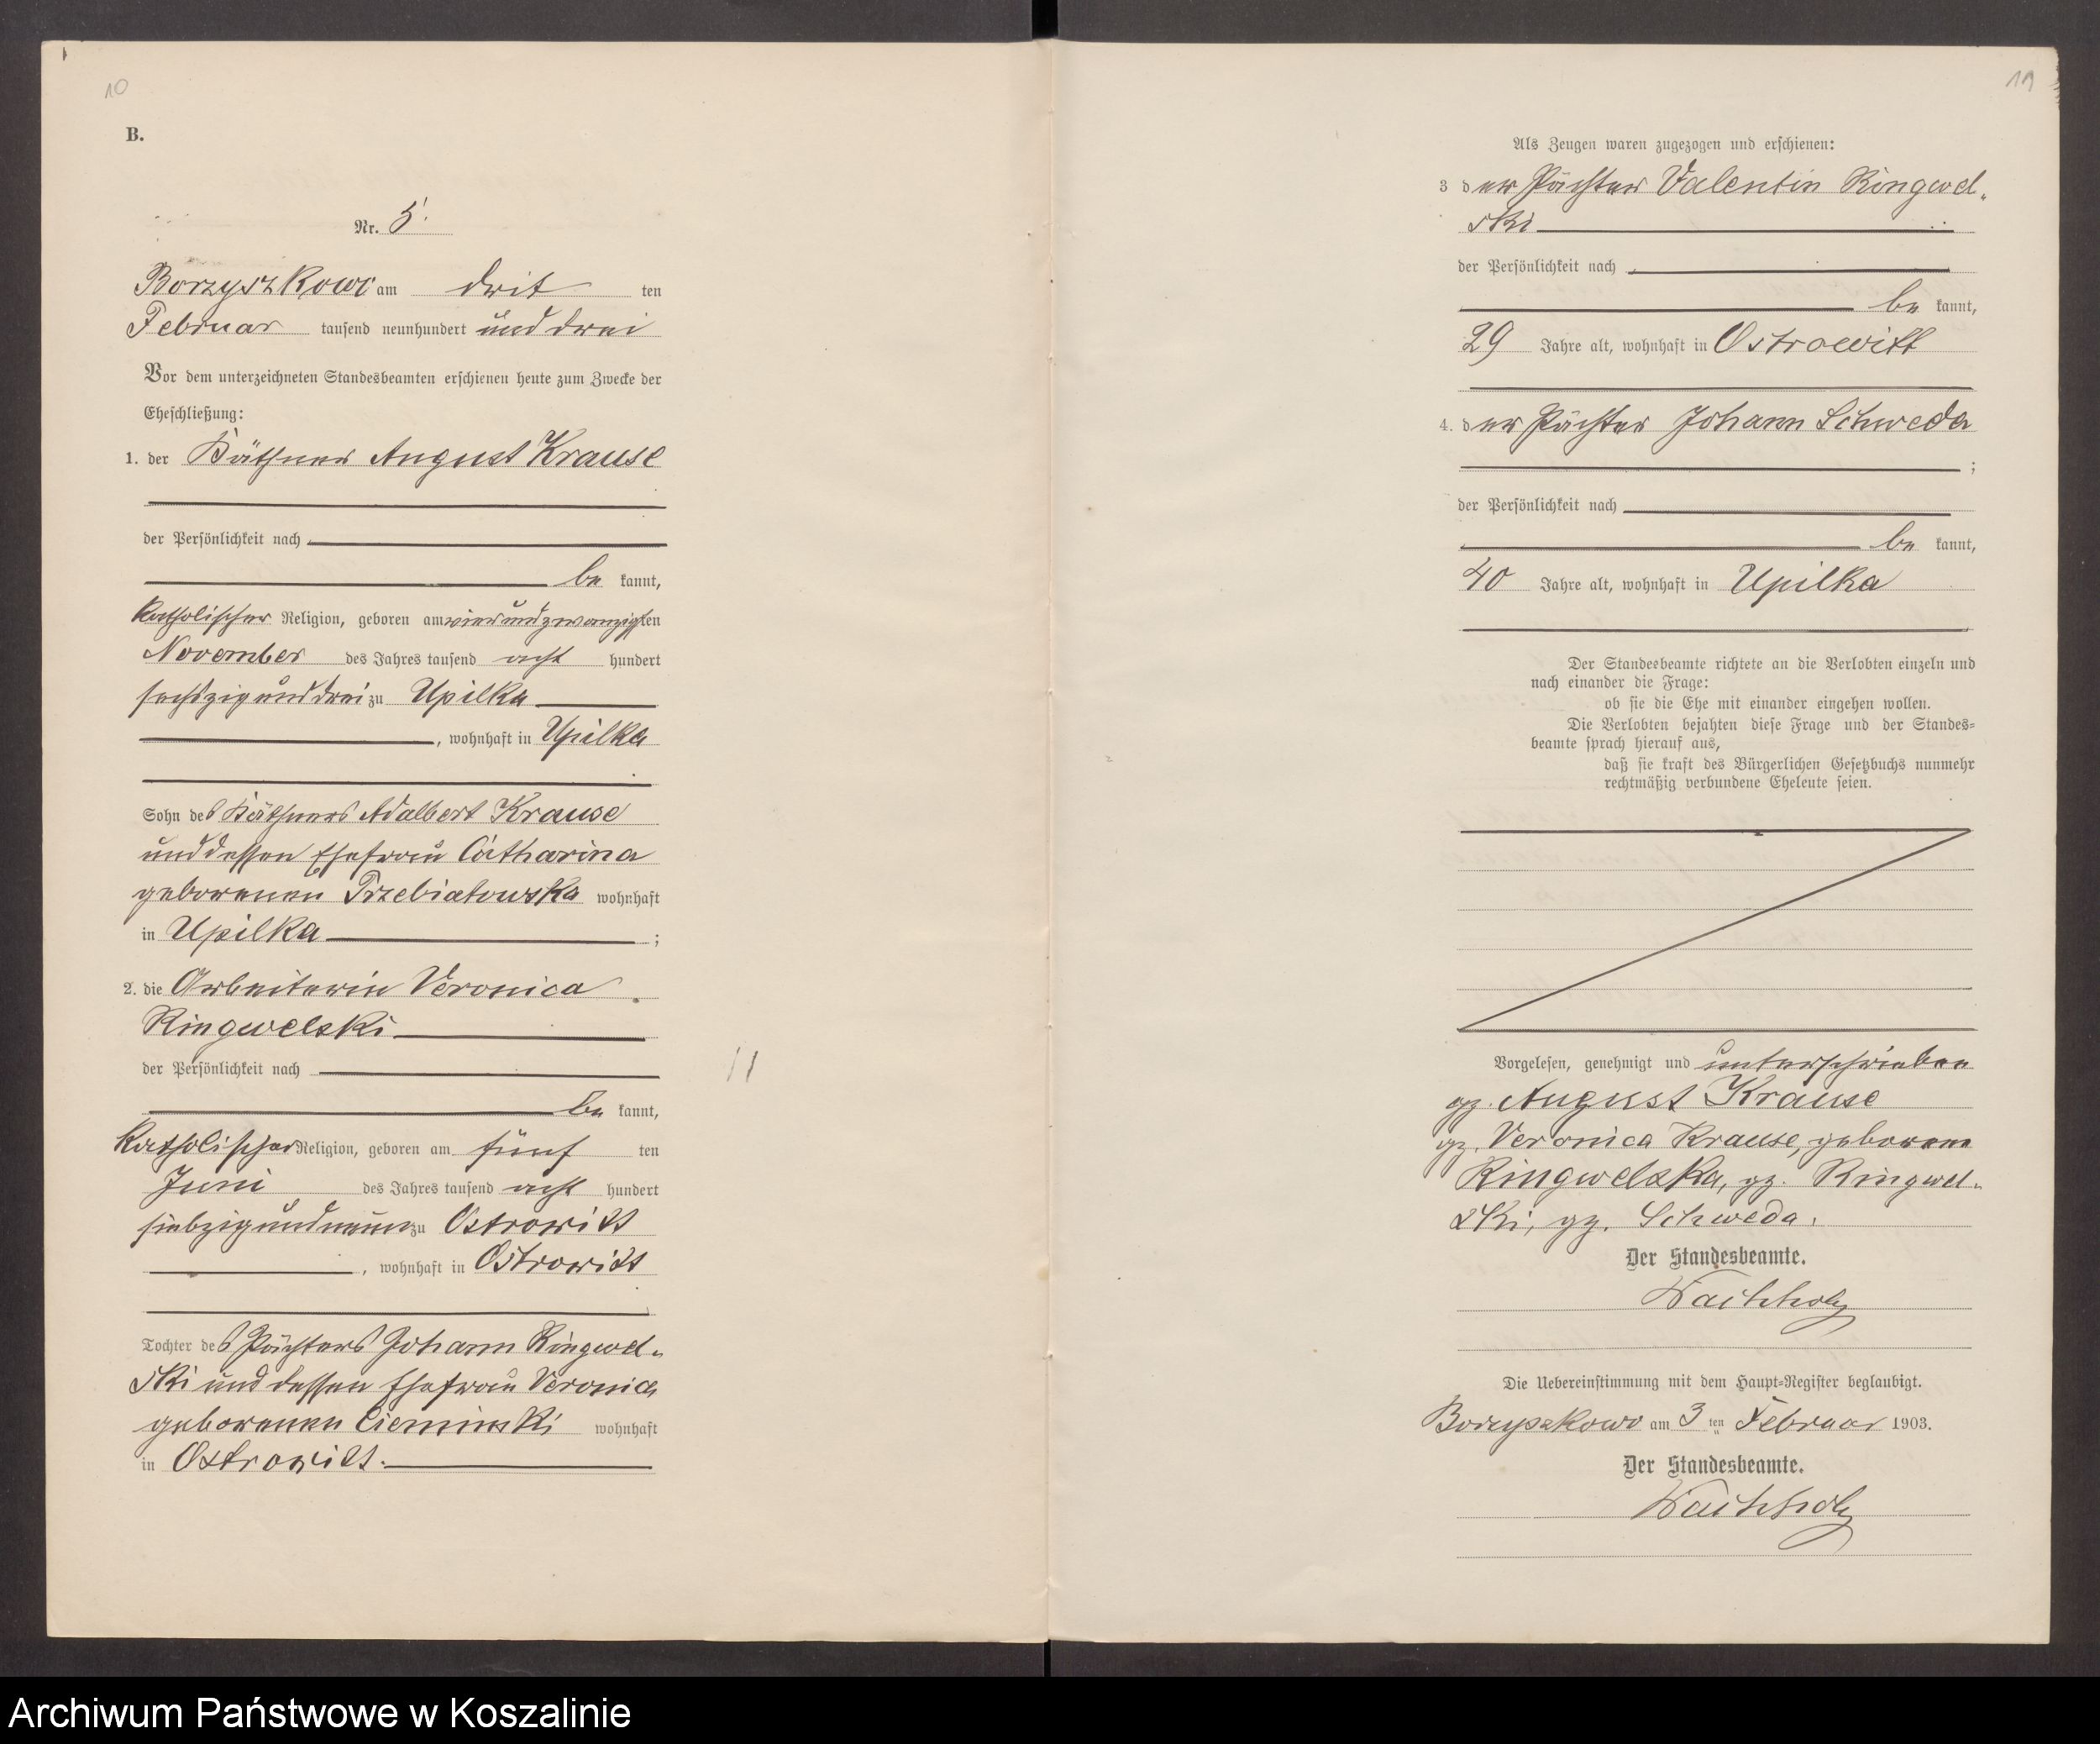 10
B.
Nr. 5.
Borzyszkowo am dritten
Februar tausend neunhundert und drei
Vor dem unterzeichneten Standesbeamten erschienen heute zum Zwecke der
Eheschließung:
1. der Käthner August Krause
der Persönlichkeit nach
bekannt,
katholischer Religion, geboren am vierundzwanzigsten
November des Jahres tausend acht hundert
sechszig und drei zu Upilka
, wohnhaft in Upilka
Sohn des Käthners Adalbert Krause
und dessen Ehefrau Catharina
geborenen Przebiatowska wohnhaft
in Upilka ;
2. die Arbeiterin Veronica
Ringwelski
der Persönlichkeit nach
bekannt,
katholischer Religion, geboren am fünften
Juni des Jahres tausend acht hundert
siebzig und neun zu Ostrowitt
, wohnhaft in Ostrowitt
Tochter des Pächters Johann Ringwel-
ski und dessen Ehefrau Veronica
geborenen Cieminski wohnhaft
in Ostrowitt.
11
19
Als Zeugen waren zugezogen und erschienen:
3 der Pächter Valentin Ringwel-
ski
der Persönlichkeit nach
bekannt,
29 Jahre alt, wohnhaft in Ostrowitt
4. der Pächter Johann Schweda
;
der Persönlichkeit nach
bekannt,
40 Jahre alt, wohnhaft in Upilka
Der Standesbeamte richtete an die Verlobten einzeln und
nach einander die Frage:
ob sie die Ehe mit einander eingehen wollen.
Die Verlobten bejahten diese Frage und der Standes-
beamte sprach hierauf aus,
daß sie kraft des Bürgerlichen Gesetzbuchs nunmehr
rechtmäßig verbundene Eheleute seien.
Vorgelesen, genehmigt und unterschrieben
gz. August Krause
gz. Veronica Krause, geborene
Ringwelska, gz. Ringwel-
ski, gz. Schweda.
Der Standesbeamte.
Wachholz
Die Uebereinstimmung mit dem Haupt-Register beglaubigt.
Borzyszkowo am 3 ten Februar 1903.
Der Standesbeamte.
Wachholz
Archiwum Państwowe w Koszalinie